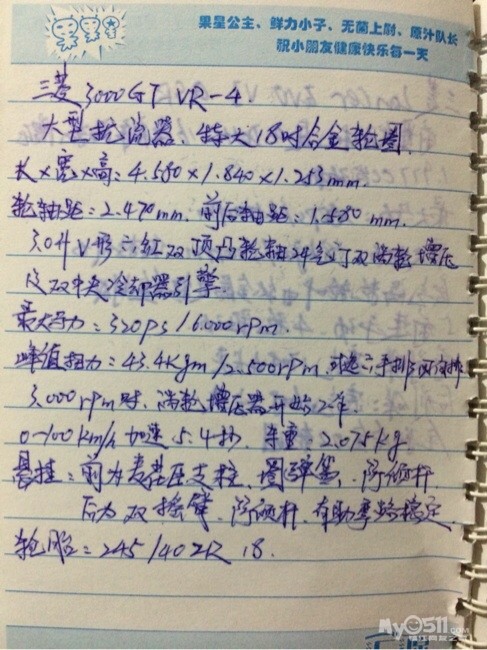 果星公主、鲜力小子、无菌上尉、原汁队长
祝小朋友健康快乐每一天
三菱3000GT VR-4.
大型扰流器、特大18吋合金轮圈.
长×宽×高:4.580×1.840×1.253mm.
轮轴距:2.470mm. 前后轴距:1.580mm.
3.0升V形六缸双顶凸轮轴24气门双涡轮增压
及双中央冷却器引擎
最大马力:320ps/6.000rpm.
峰值扭力:43.4kgm/2.500rpm.
3.000rpm时、涡轮增压器开始工作.
0-100km/h加速5.4秒. 车重2.075kg
悬挂:前为麦花臣支柱、圈弹簧、防倾杆
后为双摇臂、防倾杆、有助弯路稳定.
轮胎:245/40ZR 18.
My0511.COM